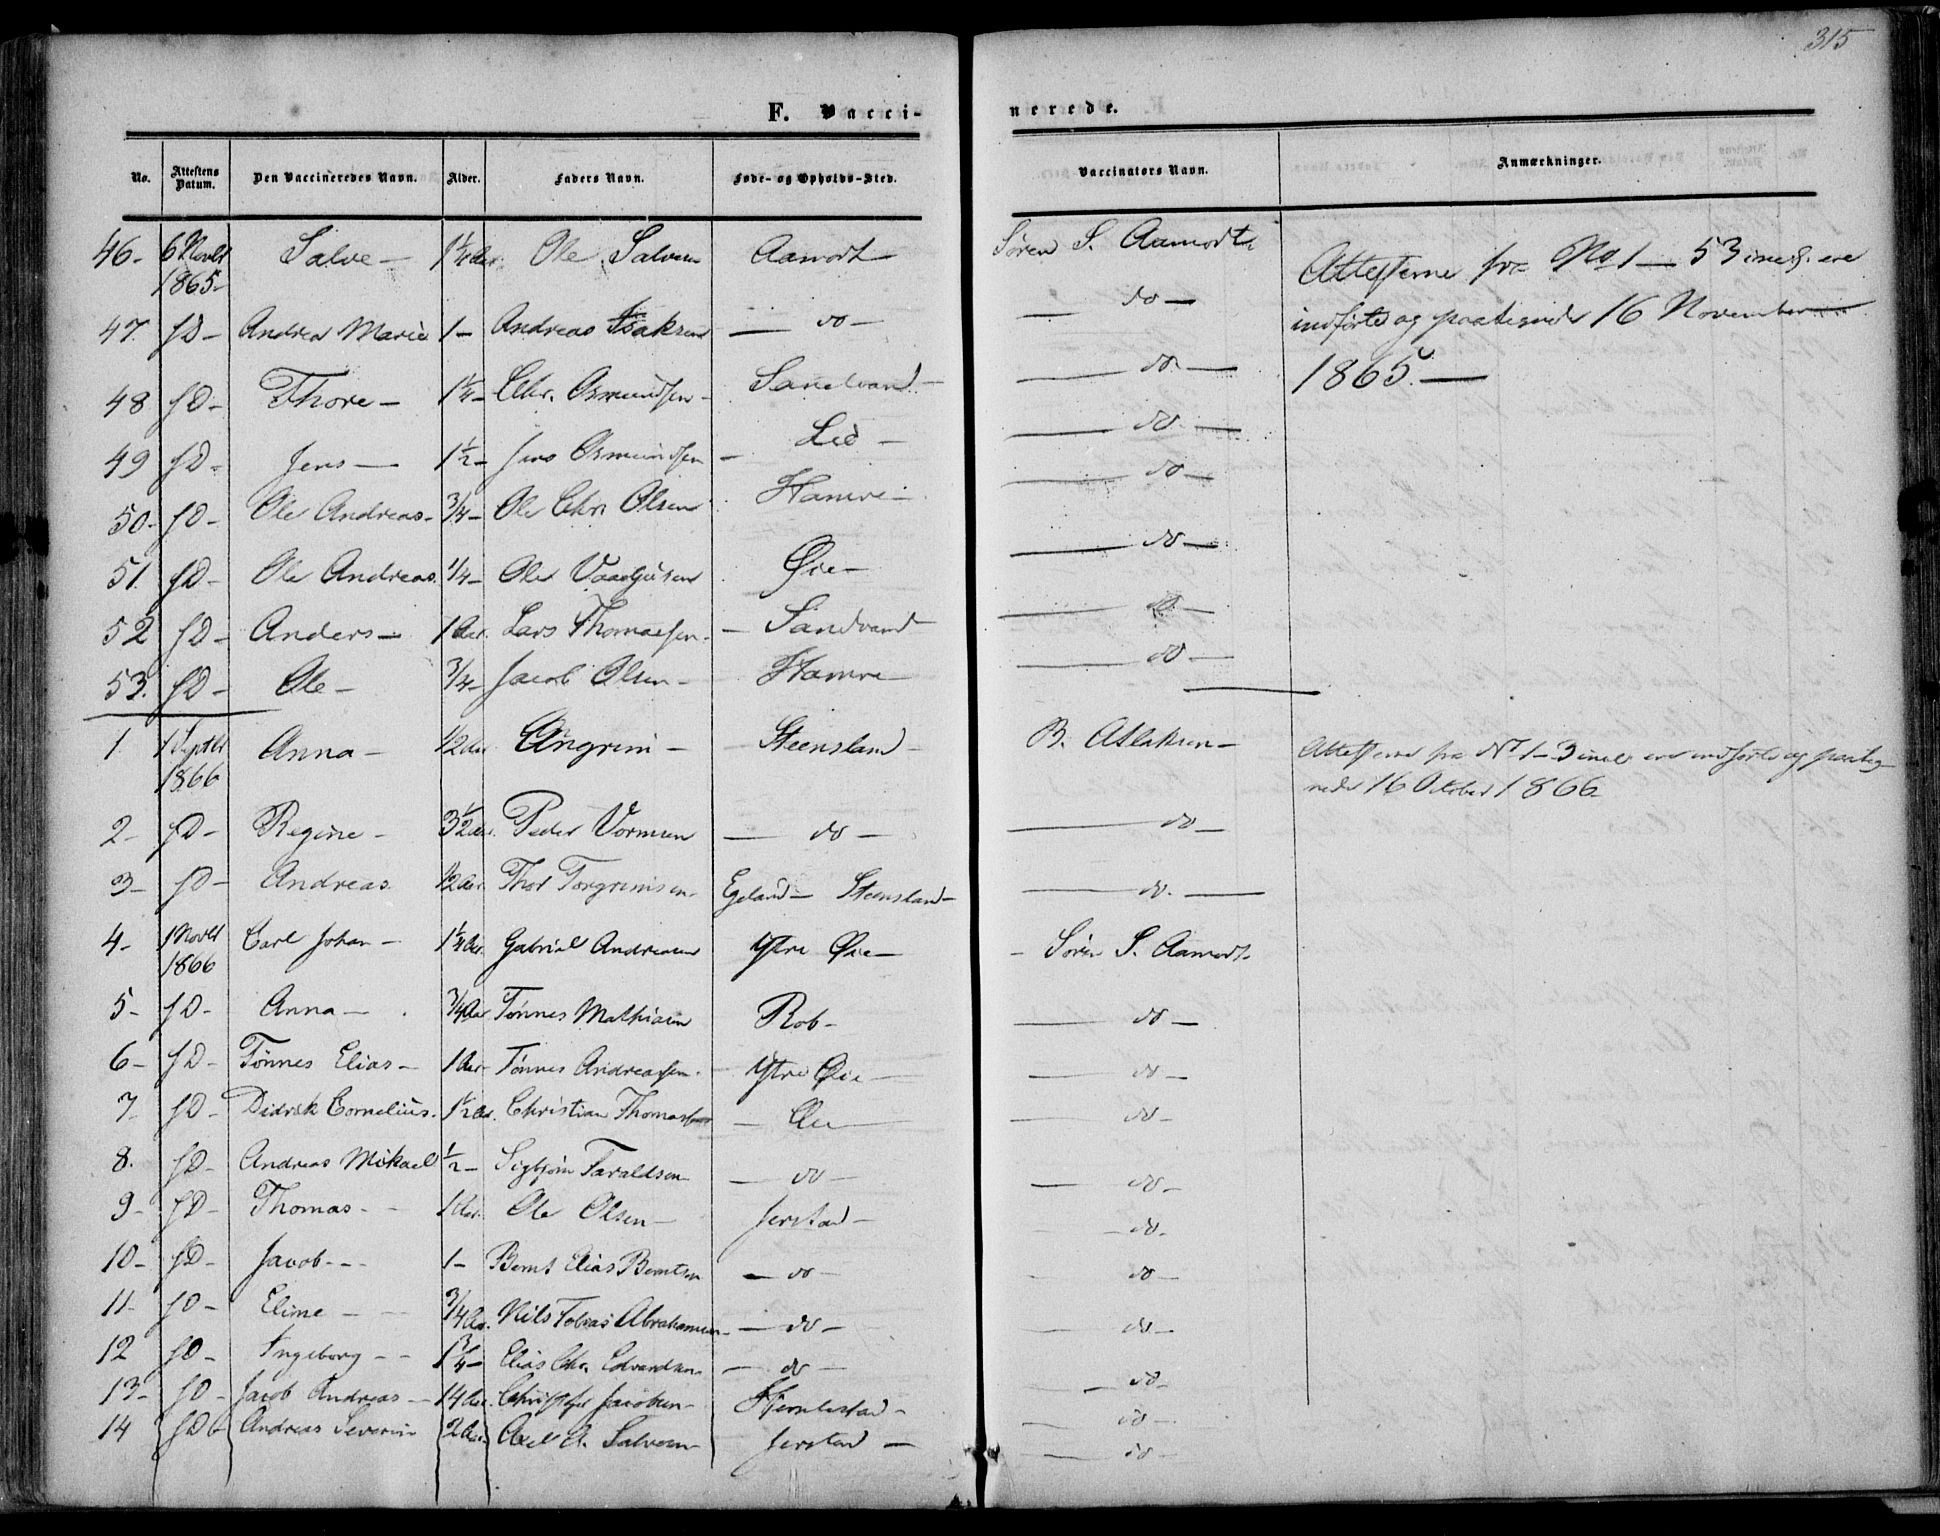 315
F. Vacci-nerede.
No. Attestens Datum. Den Vaccineredes Navn. Alder. Faders Navn. Føde- og Opholds-Sted. Vaccinators Navn. Anmærkninger.
46- 6 Novbr 1865- Salve- 1¼ Aar. Ole Salvesen Aamodt Søren S. Aamodt
47. JD- Andrea Marie 1- Andreas Isaksen - do - - do -
48 JD- Thore- 1¼- Chr. Osmundsen- Sandvand- - do -
49 JD- Jens- 1½- Jens Osmundsen - Lie - - do -
50- JD- Ole Andreas- ¾- Ole Chr. Olsen Hamre- - do -
51. JD- Ole Andreas. ¼- Ole Øie- - do -
52 JD- Anders- 1 Aar. Lars Thomassen. - Sandvand - do -
53. JD- Ole- ¾- Jacob Olsen- Hamre- - do -
Attesterne fra No 1 - 53 incl. ere
indførte og paategnede 16 November
1865.
1. 1 Septbr 1866 Anna- ½ Aar - Steensland- B. Atlaksen-
Attesterne fra No 1-3 incl. ere indførte og paateg-
nede 16 Octobr 1866
2- JD- Regine- 3½ Aar. Peder - do - - do -
3- JD- Andreas. ½ Aar. Thor Torgrimsen. Egeland- Steensland- - do. -
4- 1 Novbr 1866 Carl Johan- 1¼ Aar. Gabriel Andreasen Ytre Øie- - Søren S. Aamodt.
5- JD- Anna- ¾ Aar Tønnes Mathiasen Rob- - do -
6- JD- Tønnes Elias- 1 Aar- Tønnes Andreassen. - Ytre Øie- - do -
7- JD- Didrik Cornelius. 1½ Aar. Christian Thomassen - do -
8. JD- Andreas Mikael ½- Sigbjørn Taraldsen - do - - do -
9- JD- Thomas- 1 Aar. Ole Olsen- Jerstad- - do -
10- JD- Jacob- 1- Bernt Elias Berntsen - do - - do -
11- JD- Elime- ¾ Aar. Nils Tobias Abrahamsen- - do - - do -
12 JD- Ingeborg- 1¾- Elias Chr. Edvardsen - do - - do -
13- JD- Jacob Andreas- 14 Aar. Christopher Jacobsen- - do -
14 JD- Andreas Severin 2 Aar. Axel A. Salvesen- Jerstad - - do -
- do -